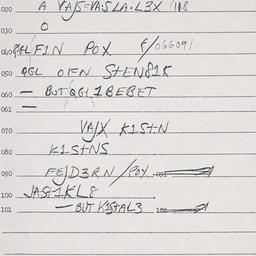 020 A VAJS=VASLA.L3X /118
030 O
040 QGL F1N POX F/066091
050 QGL OFN StLN81K
060 — BUT QGL 1BEBET
061 —
070 VAJX K1StN
080 K1StNS
090 FEJD3RN /POX
100 JASt1KL8
101 — BUT K1StAL3